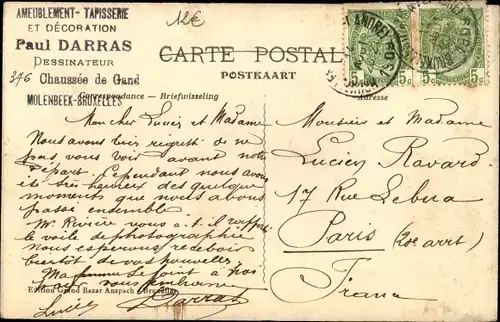 AMEUBLEMENT - TAPISSERIE
ET DÉCORATION
Paul DARRAS
DESSINATEUR
376 Chaussée de Gand
MOLENBEEK-BRUXELLES
12€
CARTE POSTALE
POSTKAART
Correspondance — Briefwisseling
Adresse
5c 5c 5c
Mon cher Lucien et Madame
Nous avons bien regretté de ne
pas vous voir avant notre
départ. Cependant nous avons
été très heureux des quelques
moments que nous avons
passé ensemble
Mr Rivière vous a-t-il rapporté
le voile de photographie
nous espérons recevoir
bientôt de vos nouvelles
Ma femme se joint à moi
pour vous embrasser
Lucie Darras
Edition Grand Bazar Anspach - Bruxelles
Monsieur et Madame
Lucien Ravard
17 Rue Lebua
Paris (20e arrt)
France